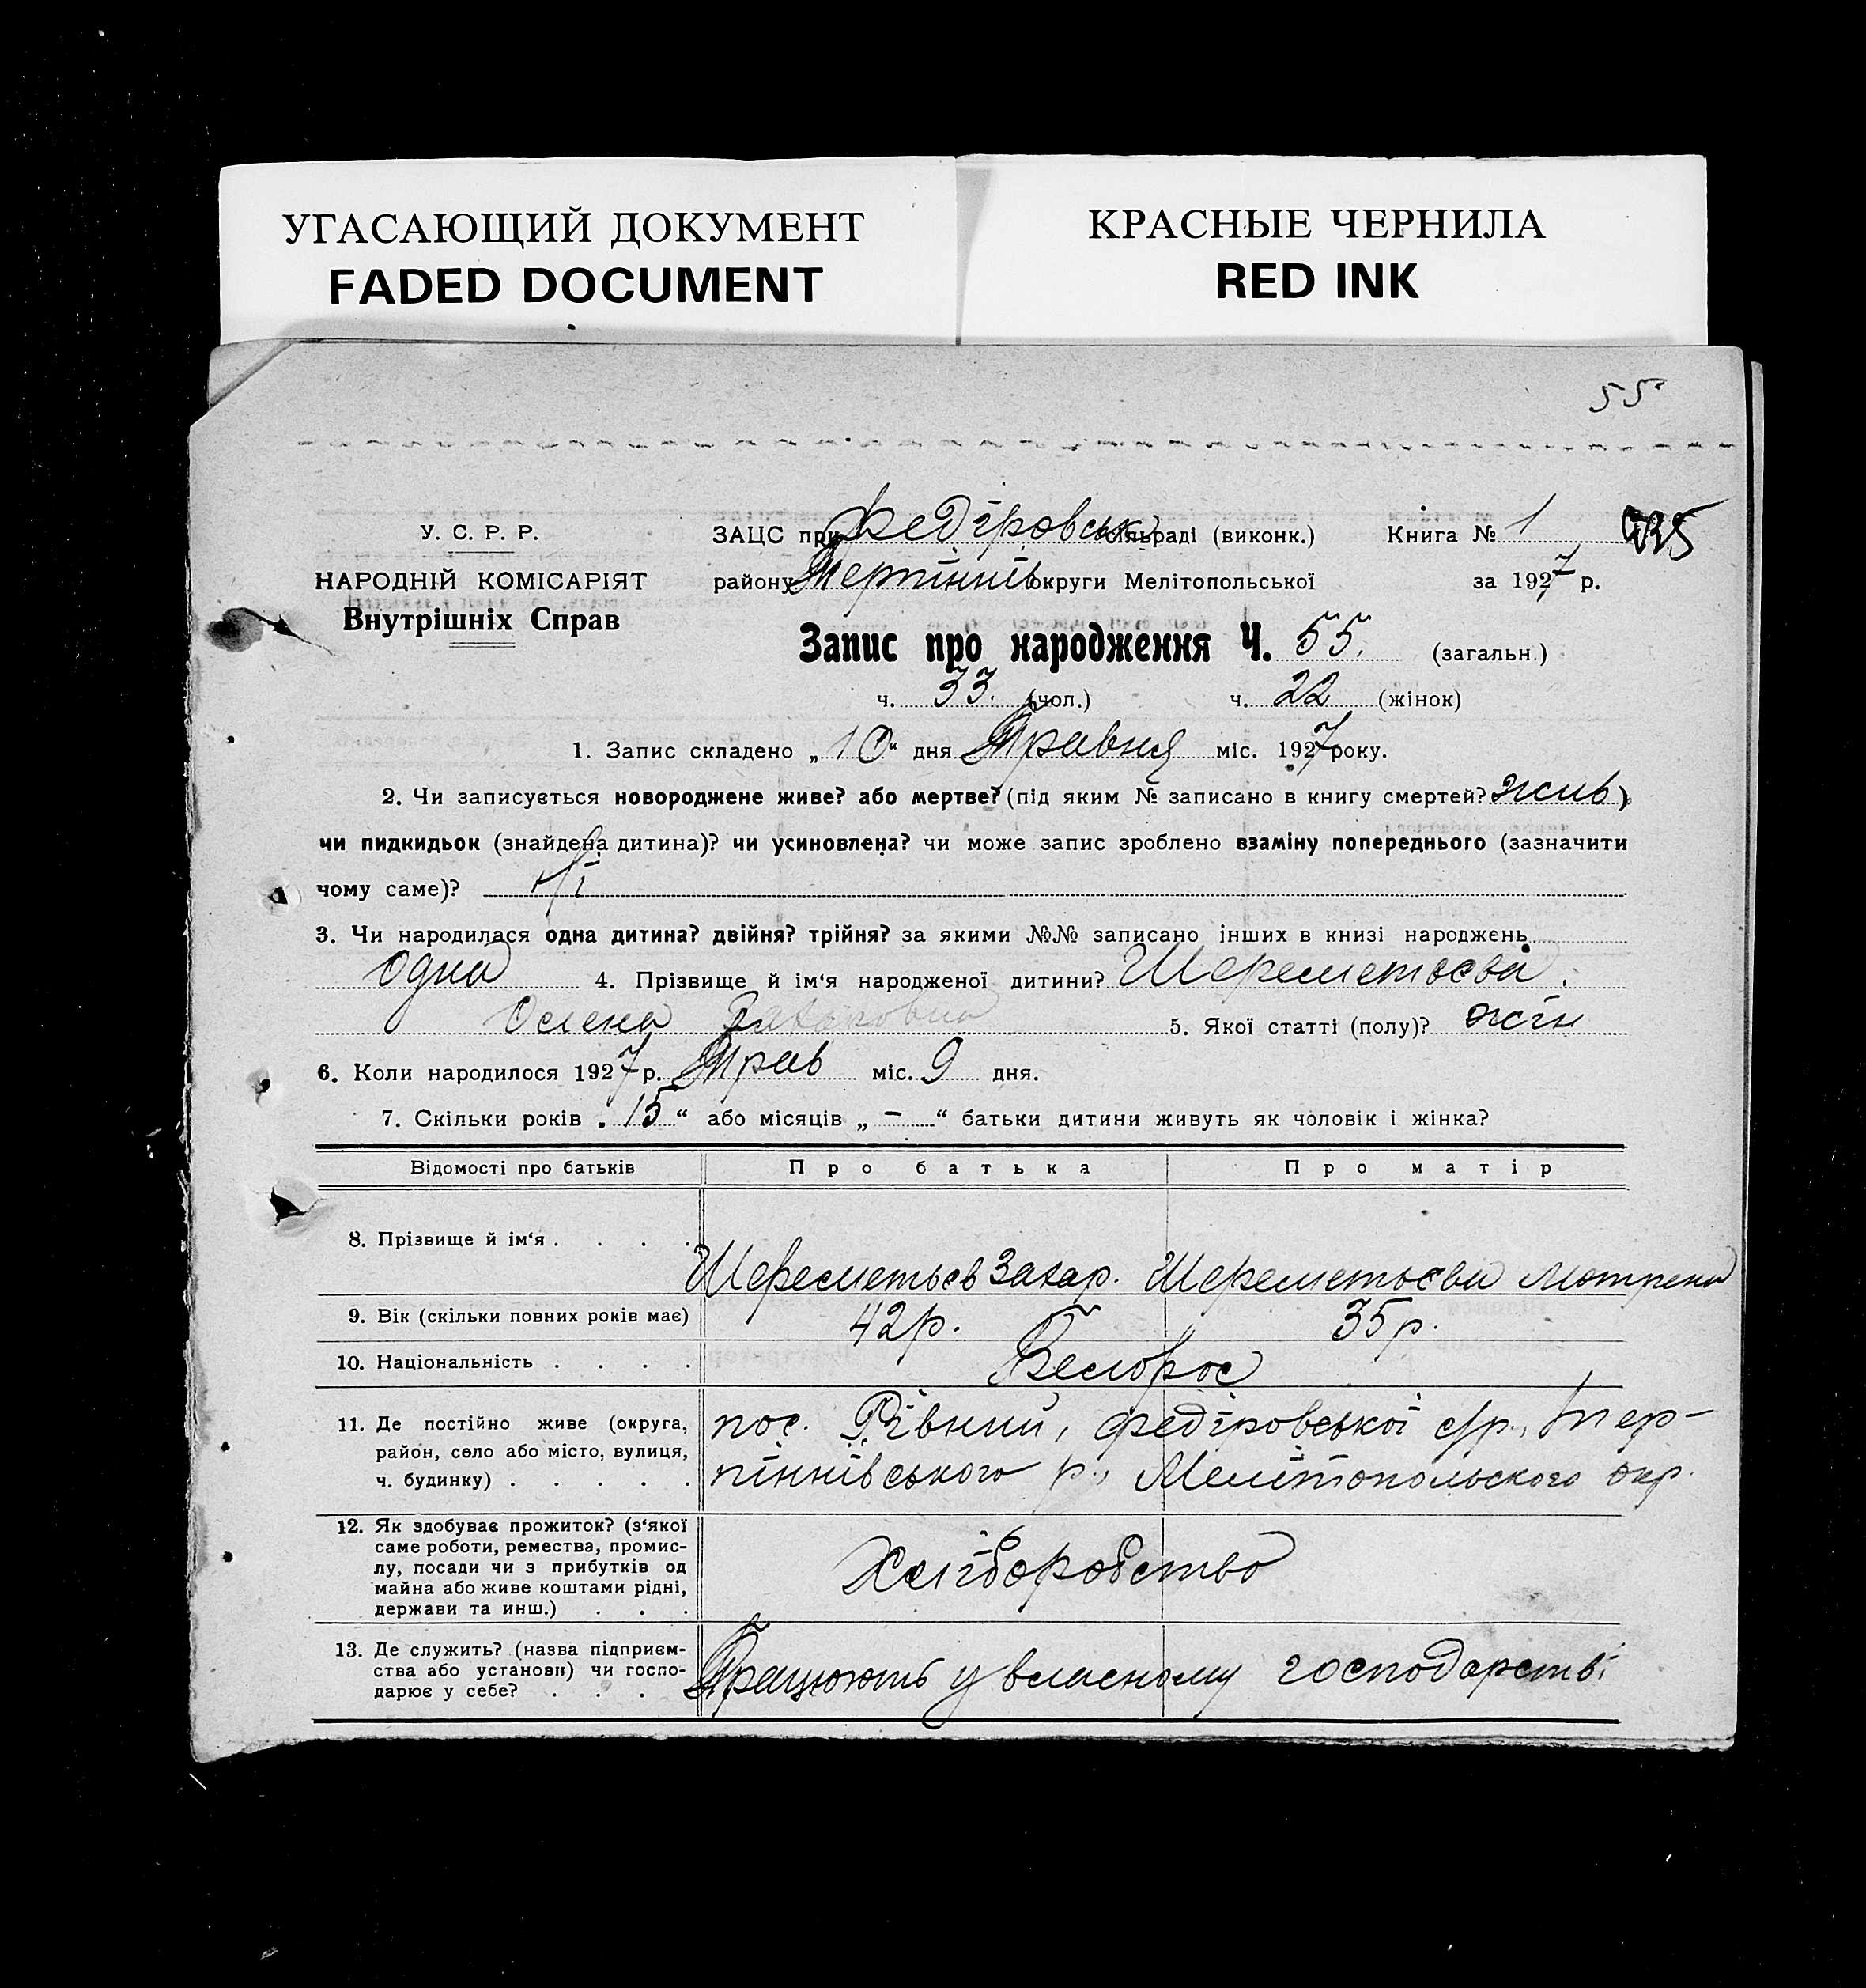 УГАСАЮЩИЙ ДОКУМЕНТ
FADED DOCUMENT
КРАСНЫЕ ЧЕРНИЛА
RED INK
55
У. С. Р. Р.
НАРОДНІЙ КОМІСАРІЯТ
Внутрішніх Справ
ЗАЦС при Федіровськ сільраді (виконк.) Книга № 1
району Терпіннів округи Мелітопольської за 1927 р.
Запис про народження Ч. 55. (загальн.)
ч. 33. (чол.) ч. 22 (жінок)
1. Запис складено „10“ дня Травня міс. 1927 року.
2. Чи записується новороджене живе? або мертве? (під яким № записано в книгу смертей? жив)
чи пидкидьок (знайдена дитина)? чи усиновлена? чи може запис зроблено взаміну попереднього (зазначити
чому саме)? Ні
3. Чи народилася одна дитина? двійня? трійня? за якими №№ записано інших в книзі народжень
одна 4. Прізвище й ім‘я народженої дитини? Шереметьєва
Олена Захаровна 5. Якої статті (полу)? жін
6. Коли народилося 1927 р. Трав міс. 9 дня.
7. Скільки років „15“ або місяців „–“ батьки дитини живуть як чоловік і жінка?
Відомості про батьків Про батька Про матір
8. Прізвище й ім‘я . . . . Шереметьєв Захар. Шереметьєва Мотрена
9. Вік (скільки повних років має) 42 р. 35 р.
10. Національність . . . . Белорос
11. Де постійно живе (округа, район, село або місто, вулиця, ч. будинку) . . . . .
пос. Рівний, Федіровської с/р., Тер-
піннівського р., Мелітопольського окр.
12. Як здобуває прожиток? (з‘якої саме роботи, ремества, промис-
лу, посади чи з прибутків од
майна або живе коштами рідні,
держави та инш.) . . .
Хліборобство
13. Де служить? (назва підприєм-
ства або установи) чи госпо-
дарює у себе? . . .
Працюють у власному господарстві